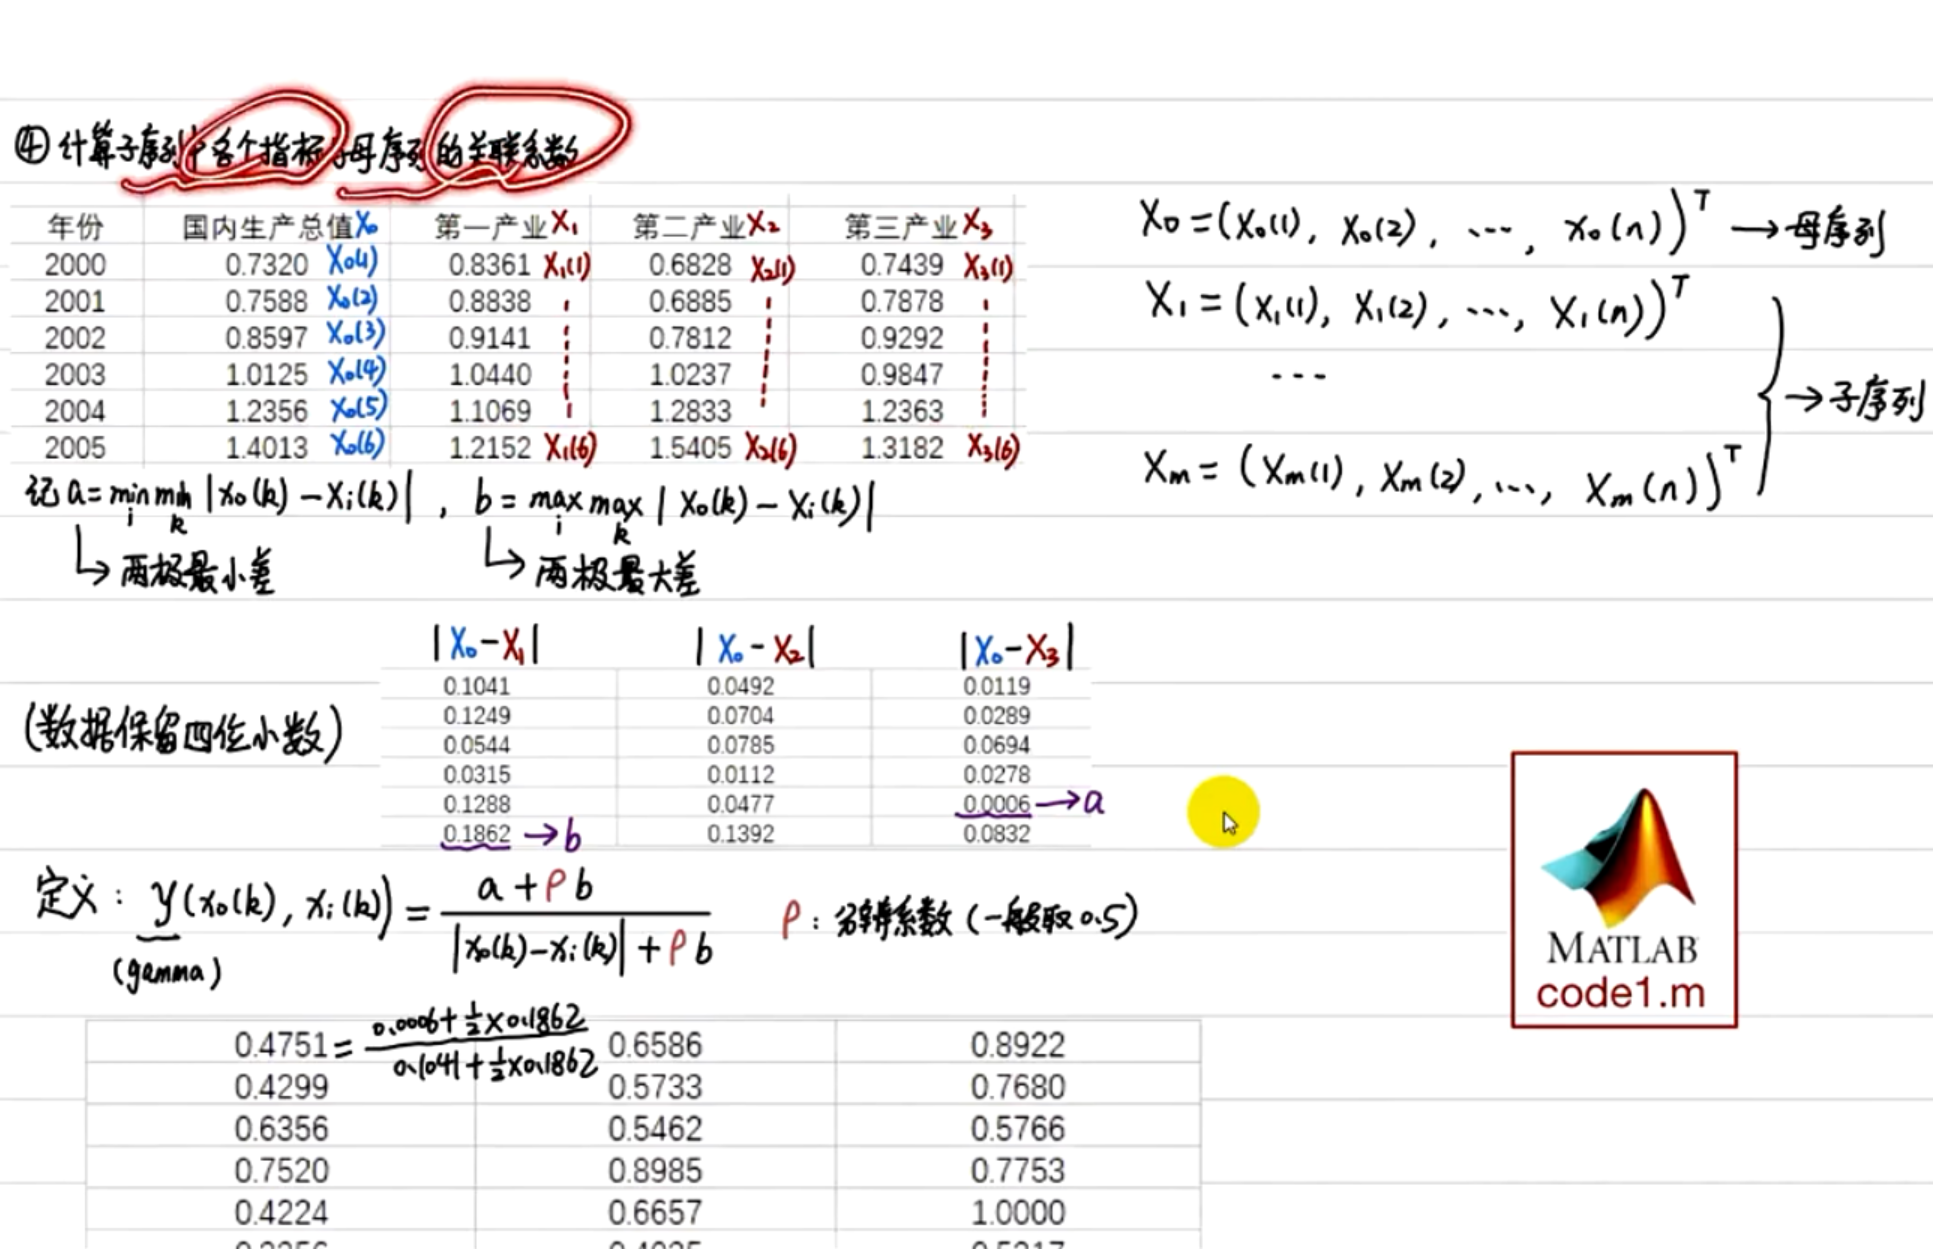 ④计算子序列中各个指标与母序列的关联系数
年份 国内生产总值X₀ 第一产业X₁ 第二产业X₂ 第三产业X₃
2000 0.7320 X₀(1) 0.8361 X₁(1) 0.6828 X₂(1) 0.7439 X₃(1)
2001 0.7588 X₀(2) 0.8838 0.6885 0.7878
2002 0.8597 X₀(3) 0.9141 0.7812 0.9292
2003 1.0125 X₀(4) 1.0440 1.0237 0.9847
2004 1.2356 X₀(5) 1.1069 1.2833 1.2363
2005 1.4013 X₀(6) 1.2152 X₁(6) 1.5405 X₂(6) 1.3182 X₃(6)
X₀=(X₀(1), X₀(2), ..., x₀(n))ᵀ →母序列
X₁=(X₁(1), X₁(2), ..., X₁(n))ᵀ
...
→子序列
Xm=(Xm(1), Xm(2), ..., Xm(n))ᵀ
记a=min min |x₀(k)-Xi(k)|, b=max max |X₀(k)-Xi(k)|
i k i k
→两极最小差 →两极最大差
|X₀-X₁| |X₀-X₂| |X₀-X₃|
0.1041 0.0492 0.0119
(数据保留四位小数) 0.1249 0.0704 0.0289
0.0544 0.0785 0.0694
0.0315 0.0112 0.0278
0.1288 0.0477 0.0006→a
0.1862→b 0.1392 0.0832
定义: y(x₀(k), xi(k)) = a+ρb
|x₀(k)-xi(k)|+ρb
ρ: 分辨系数(一般取0.5)
(gamma)
MATLAB
code1.m
0.4751= 0.0006+½×0.1862 0.6586 0.8922
0.1041+½×0.1862
0.4299 0.5733 0.7680
0.6356 0.5462 0.5766
0.7520 0.8985 0.7753
0.4224 0.6657 1.0000